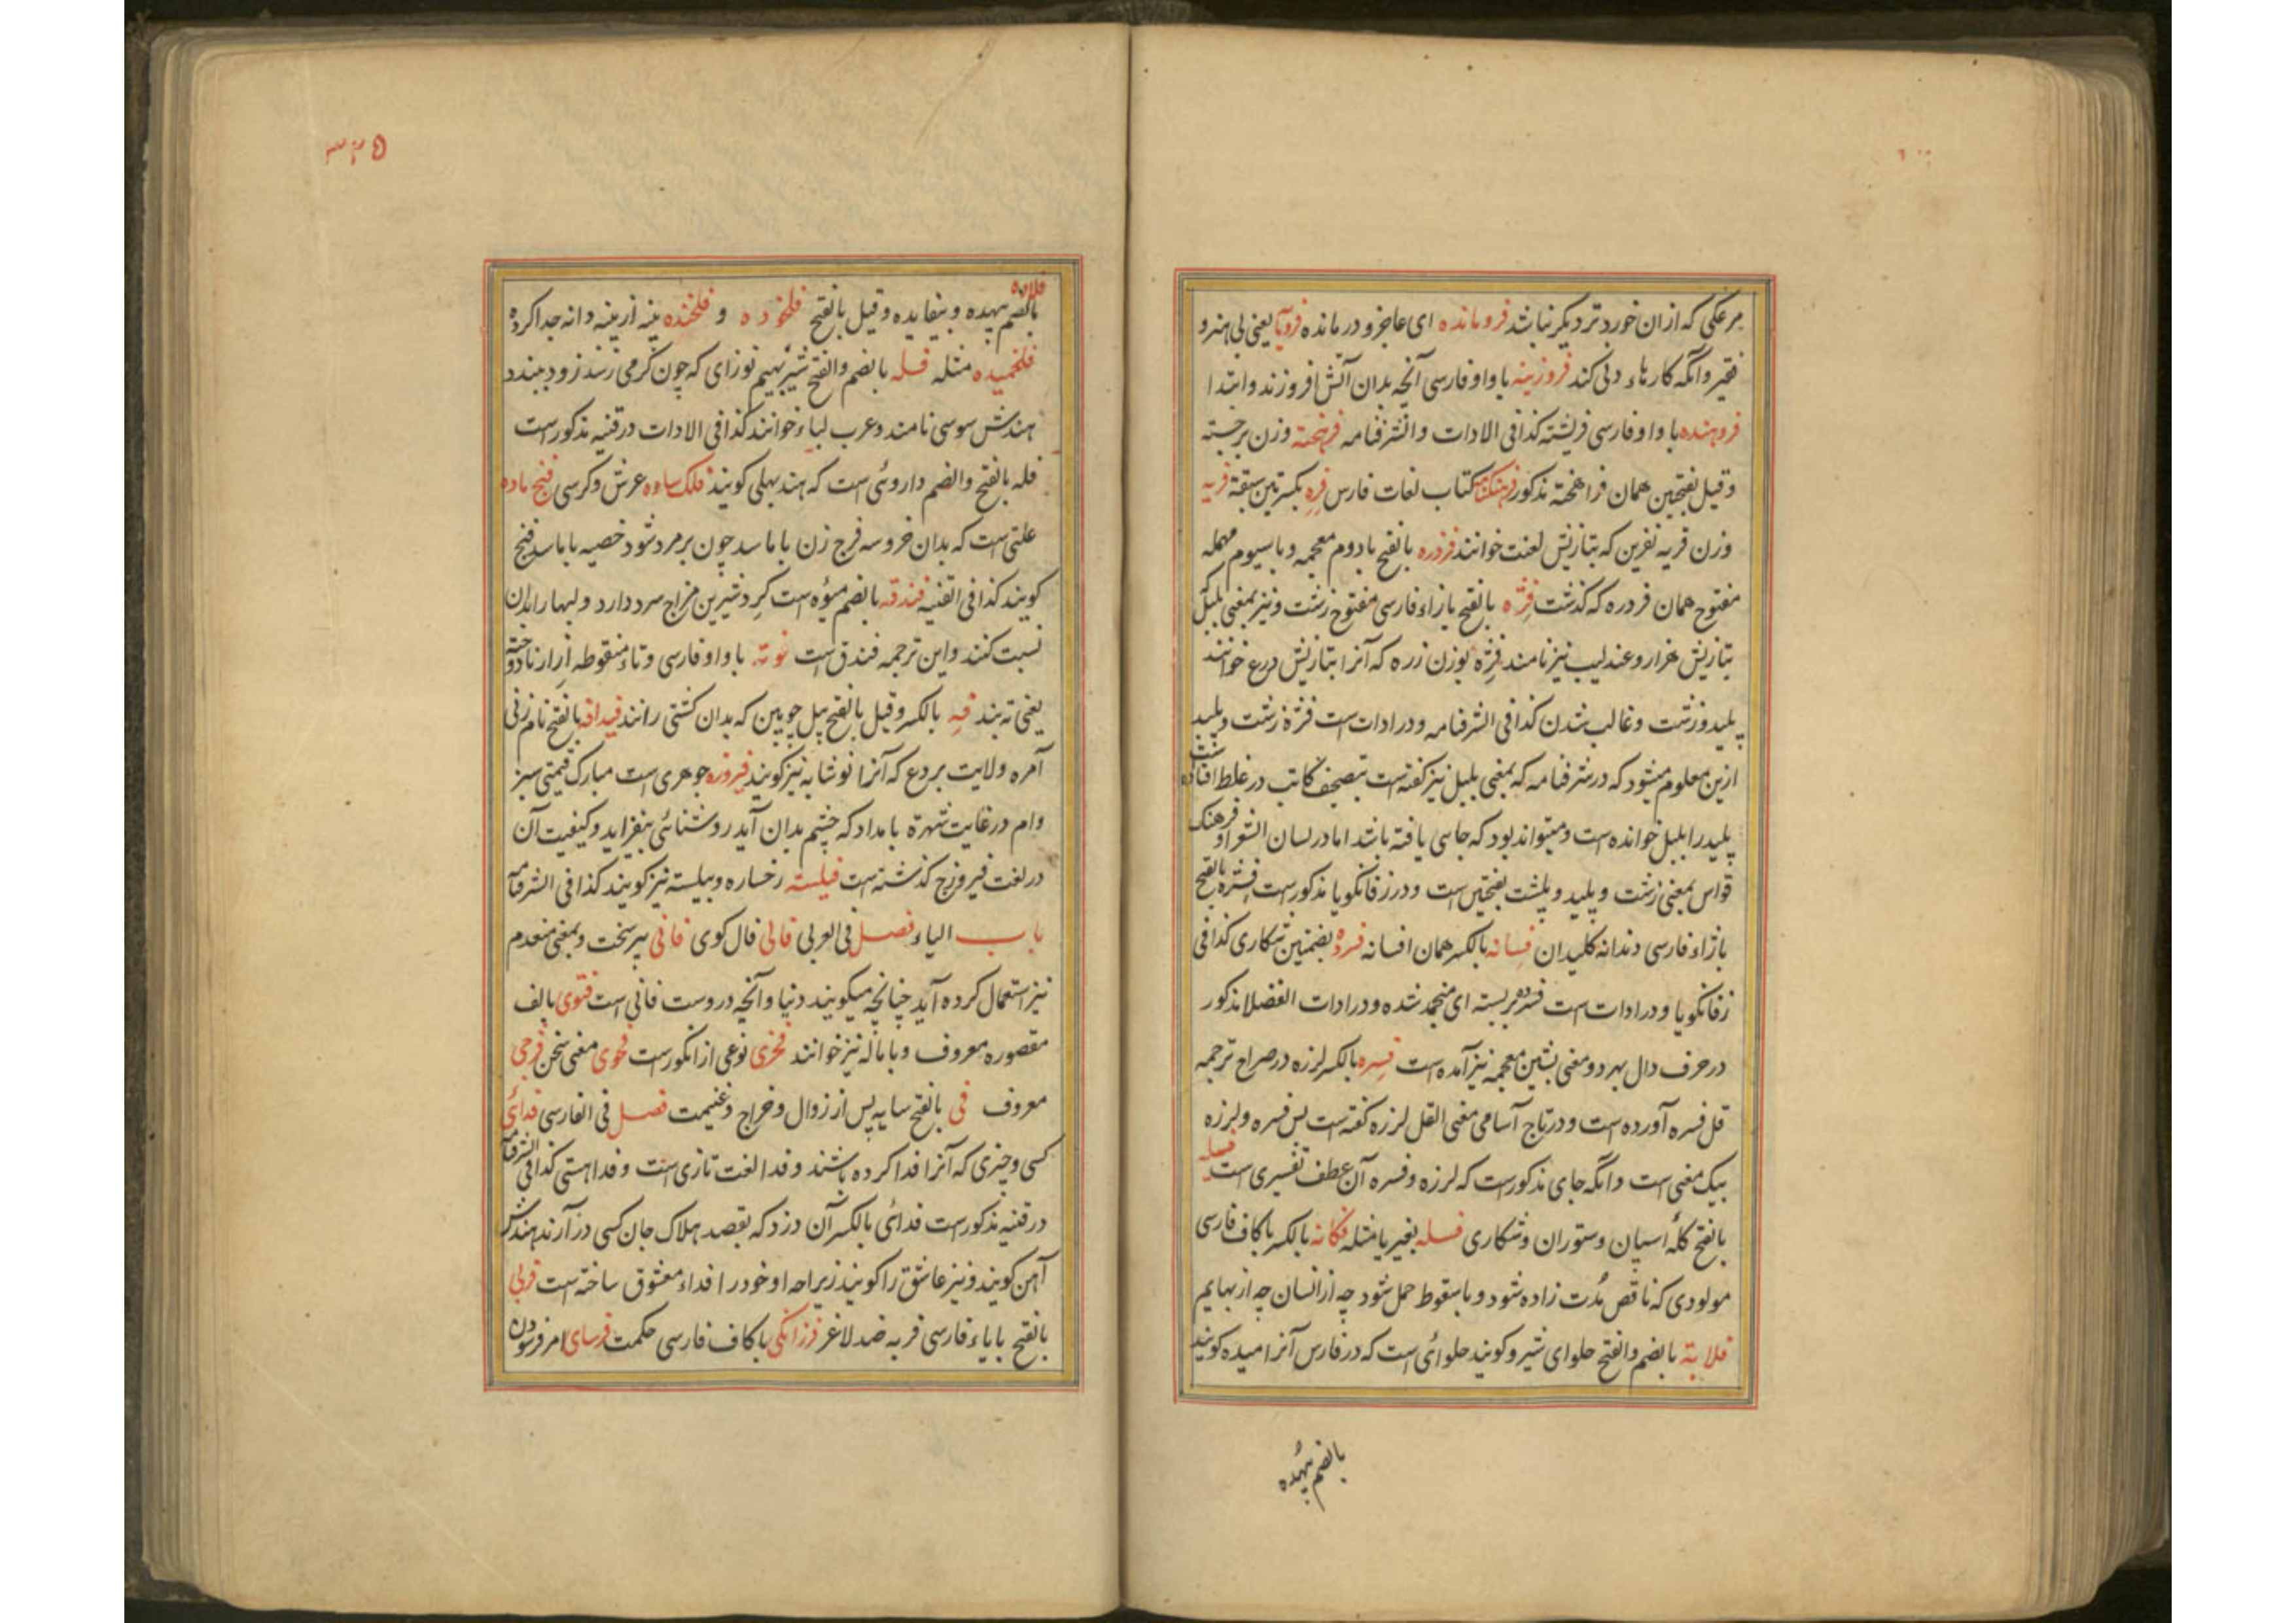 مرعکی که ازان خورد تر دیکر نباشد فرومانده ای عاجز و درمانده فرومایه یعنی بی هنر و
فقیر وآنکه کارهاء دنی کند فروزینه با واو فارسی آنچه بدان آتش افروزند و ابتدا
فروهنده با واو فارسی فریشته کذا فی الادات والشرفنامه فرهخته وزن برجسته
وقیل بفتحتین همان فراهخته مذکور فرهنکنامه کتاب لغات فارس فره بکسرتین سبقة فریه
وزن قریه نفرین که بتازیش لعنت خوانند فزدره بالفتح با دوم معجمه و با سیوم مهمله
مفتوح همان فردره که کذشت فژه بالفتح با زاء فارسی مفتوح زشت و نیز بمعنی بلبل
بتازیش هزار و عندلیب نیز نامند فژه بوزن زره که آنرا بتازیش درع خوانند
پلید و زشت و غالب شدن کذا فی الشرفنامه و در ادات است فژه زشت و پلید
ازین معلوم میشود که در شرفنامه که بمعنی بلبل نیز کفته است بتصحیف کاتب در غلط افتاده است
پلید را بلبل خوانده است و میتواند بود که جایی یافته باشد اما در لسان الشعرا و فرهنک
قواس بمعنی زشت و پلید و پلشت بفتحتین است و در زفانکویا مذکور است فشره بالفتح
با زاء فارسی دندانه کلیدان فسانه بالکسر همان افسانه فسره بضمتین شکاری کذا فی
زفانکویا و در ادات است فسرده بسته ای منجمد شده و در ادات الفضلا مذکور
در حرف دال بهر دو معنی بشین معجمه نیز آمده است فسره بالکسر لرزه در صراح ترجمه
قل فسره آورده است و در تاج آسامی معنی القل لرزه کفته است پس فسره و لرزه
بیک معنی است و آنکه جای مذکور است که لرزه و فسره آن عطف تفسیری است فسیله
بالفتح کلهٔ اسپان و ستوران و شکاری فسله بغیر یا مثله فکانه بالکسر با کاف فارسی
مولودی که ناقص مدت زاده شود و یا سقوط حمل شود چه از انسان چه از بهایم
فلاته بالضم والفتح حلوای شیر و کویند حلوائی است که در فارس آنرا میده کویند
بالضم بیهده
۳۳۵
فلاده
بالضم بیهده و بیفایده و قیل بالفتح فلخوده و فلخنده پنبه از پنبه دانه جدا کرده
فلخمیده مثله فله بالضم والفتح شیر بهیم نوزای که چون کرمی رسد زود ببندد
هندش سوسی نامند و عرب لباء خوانند کذا فی الادات در قنیه مذکور است
فله بالفتح والضم داروئی است که هند بهلی کویند فلک ساوه عرش و کرسی فنج باده
علتی است که بدان خروسه فرج زن باماسد چون بر مرد شود خصیه باماسد فنج
کویند کذا فی القنیه فندقه بالضم میوه است کرد شیرین مزاج سرد دارد و لبها را بدان
نسبت کنند و این ترجمه فندق است فوته با واو فارسی و تاء منقوطه ازار نادوخته
یعنی ته بند فه بالکسر و قیل بالفتح بیل چوبین که بدان کشتی رانند فیداقه بالفتح نام زنی
آمره ولایت بردع که آنرا نوشابه نیز کویند فیروزه جوهری است مبارک قیمتی سبز
وام در غایت شهرة بامداد که چشم بدان آید روشنائی بیفزاید و کیفیت آن
در لغت فیروزج کذشته است فیلسته رخساره و پیلسته نیز کویند کذا فی الشرفنامه
باب الیاء فصل فی العربی فالی فال کوی فانی پیر سخت و بمعنی منعدم
نیز استعمال کرده آید چنانچه میکویند دنیا و آنچه دروست فانی است فتوی بالف
مقصوره معروف و باماله نیز خوانند فخری نوعی از انکور است فحوی معنی سخن فرجی
معروف فی بالفتح سایه پس از زوال و خراج و غنیمت فصل فی الفارسی فدائی
کسی و چیزی که آنرا فدا کرده باشند و فدا لغت تازی است و فدا هستی کذا فی الشرفنامه
در قنیه مذکور است فدائی بالکسر آن دزد که بقصد هلاک جان کسی در آرند هندش
آهن کویند و نیز عاشق را کویند زیراچه او خود را فداء معشوق ساخته است فربی
بالفتح با باء فارسی فربه ضد لاغر فرزانکی با کاف فارسی حکمت فرسای امر فرسودن